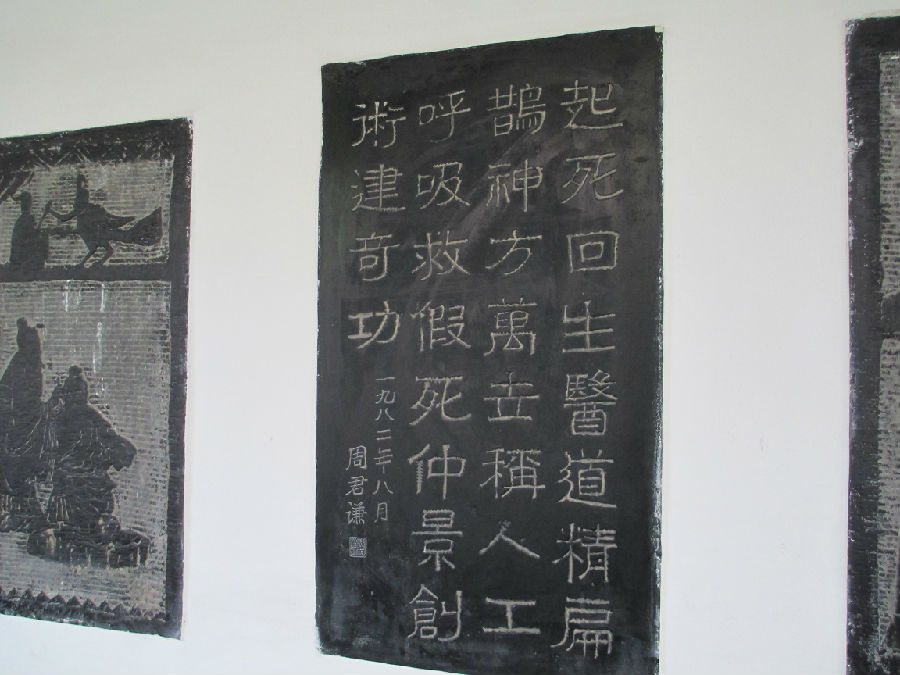 起死回生醫道精扁
鵲神方萬世稱人工
呼吸救假死仲景創
術建奇功
一九八二年八月
周君谦